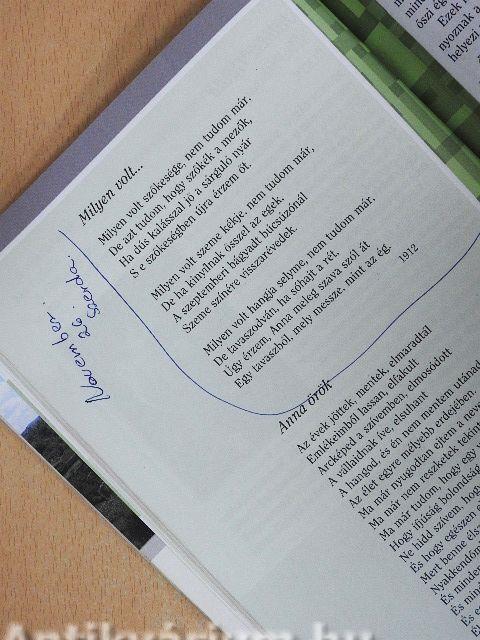 Milyen volt...
Milyen volt szőkesége, nem tudom már.
De azt tudom, hogy szőkék a mezők,
Ha dús kalásszal jő a sárguló nyár
S e szőkeségben újra érzem őt.
Milyen volt szeme kékje, nem tudom már,
De ha kinyílnak ősszel az egek,
A szeptemberi bágyadt búcsúzónál
Szeme színére visszarévedek.
Milyen volt hangja selyme, nem tudom már,
De tavaszodván, ha sóhajt a rét,
Úgy érzem, Anna meleg szava szól át
Egy tavaszból, mely messze, mint az ég.
1912
November
26 Szerda.
Anna örök
Az évek jöttek, mentek, elmaradtál
Emlékeimből lassan, elfakult
Arcképed a szívemben, elmosódott
A vállaidnak íve, elsuhant
A hangod, és én nem mentem utánad
Az élet egyre mélyebb erdejében.
Ma már nyugodtan ejtem a neve
Ma már nem reszketek tekint
Ma már tudom, hogy egy
Hogy ifjúság bolondság
Ne hidd szívem, hog
És hogy egészen e
Mert benne éls
Nyakkendőm
És minden
És min
És e
őszi ég
Ezek
nyoznak a
helyezi
Antikvárium.hu